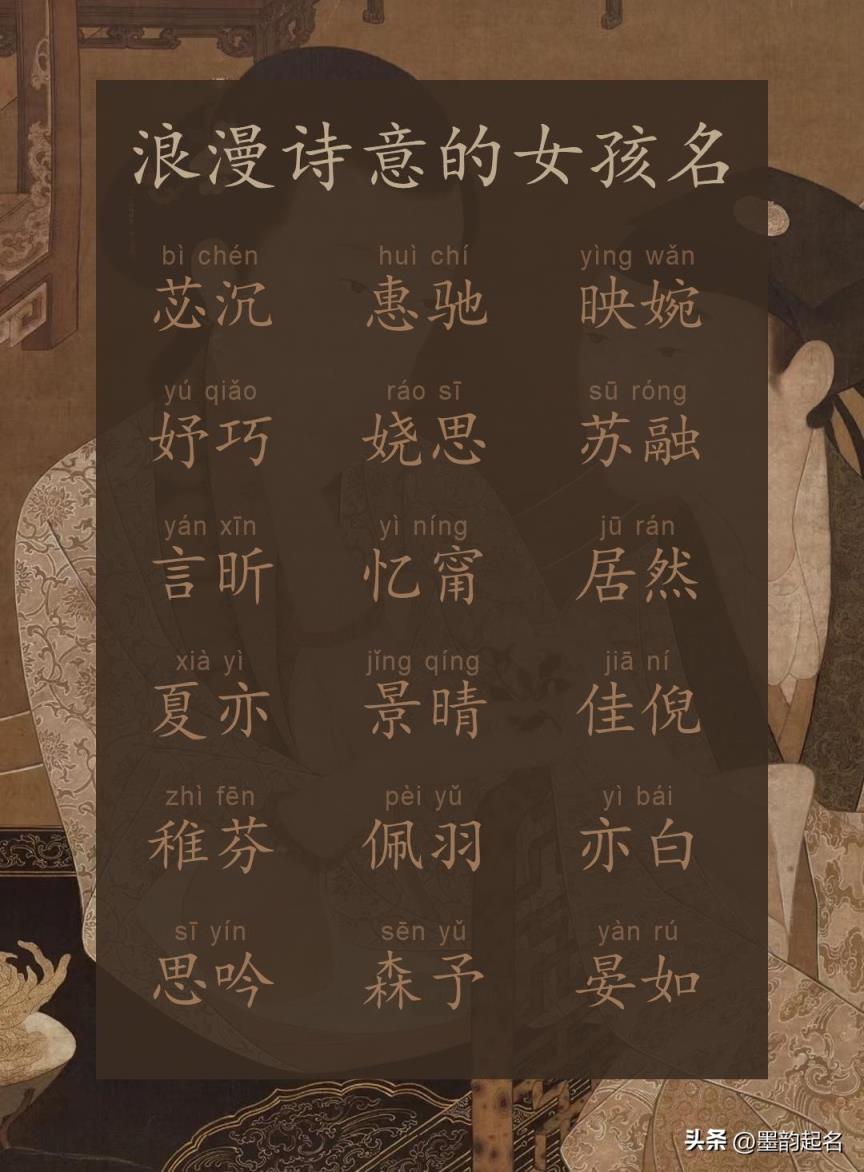 浪漫诗意的女孩名
bì chén huì chí yìng wǎn
苾沉 惠驰 映婉
yú qiǎo ráo sī sū róng
妤巧 娆思 苏融
yán xīn yì níng jū rán
言昕 忆甯 居然
xià yì jǐng qíng jiā ní
夏亦 景晴 佳倪
zhì fēn pèi yǔ yì bái
稚芬 佩羽 亦白
sī yín sēn yǔ yàn rú
思吟 森予 晏如
头条 @墨韵起名